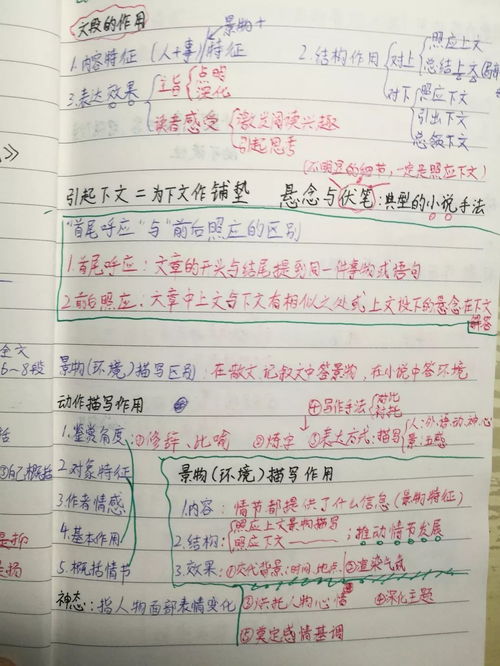 文段的作用
景物+
1.内容特征(人+事)特征
2.结构作用
对上
照应上文
总结上文
对下
照应下文
引出下文
总领下文
3.表达效果
主旨
点明
深化
读者感受
激发阅读兴趣
引起思考
(不明显的细节,一定是照应下文)
引起下文=为下文作铺垫 悬念与伏笔:典型的小说手法
"首尾呼应"与"前后照应的区别
1.首尾呼应:文章的开头与结尾提到同一件事物或语句
2.前后照应:文章中上文与下文有相似之处或上文设下的悬念在下文
解答
全文
6~8段
景物(环境)描写区别:在散文.记叙文中答景物,在小说中答环境
动作描写作用
④写作手法
对比
衬托
1.鉴赏角度:①修辞、比喻 ②炼字 ③表达方式:描写
人:外.语.动.神.心
景:五感
2.对象特征
3.作者情感
4.基本作用
5.概括情节
景物(环境)描写作用
1.内容:情节都提供了什么信息(景物特征)
2.结构:
照应上文景物描写
照应下文
;推动情节发展
3.效果:①交代背景:时间.地点 ②渲染气氛
③烘托人物心情 ④深化主题
⑤奠定感情基调
神态:指人物面部表情变化